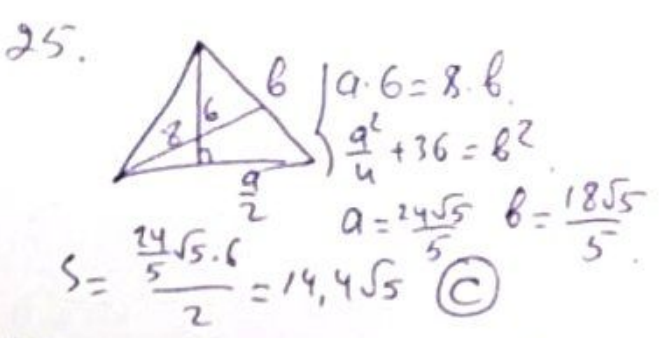 25.
8 6 в a/2
{ a·6 = 8·в.
a²/4 + 36 = в²
a = 24√5/5 в = 18√5/5.
S = (24/5 √5·6)/2 = 14,4√5 C